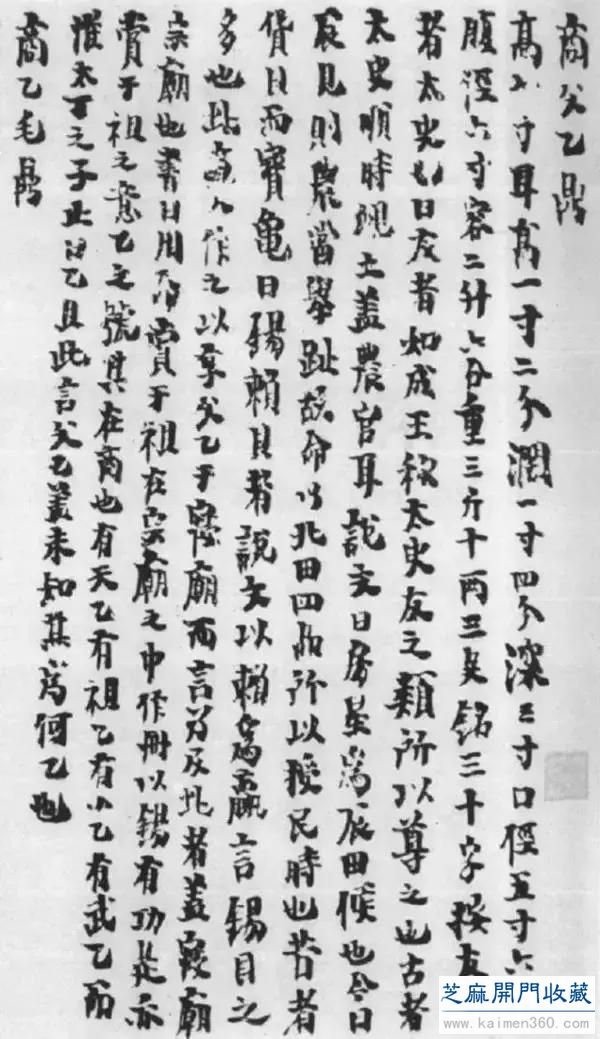 商父乙鼎
高八寸耳高一寸二分濶一寸四分深三寸口徑五寸六
腹徑六寸容二升六合重三斤十兩三足銘三十字按友
者太史也曰友者如成王稱太史友之類所以尊之也古者
太史順時覛土蓋農官耳說文曰房星為辰田候也今曰
辰見則農當舉趾故命以北田四品所以授民時也昔者
貨貝而寶龜曰錫賴貝者說文以賴為贏言錫貝之
多也此商人作之以享父乙于寢廟而言及此者蓋寢廟
宗廟也書曰用命賞于祖在宗廟之中作冊以錫有功是亦
賞于祖之意乙之號其在商也有天乙有祖乙有小乙有武乙而
惟太丁之子止曰乙且此言父乙蓋未知其為何乙也
商乙毛鼎
芝麻開門收藏
www.kaimen360.com